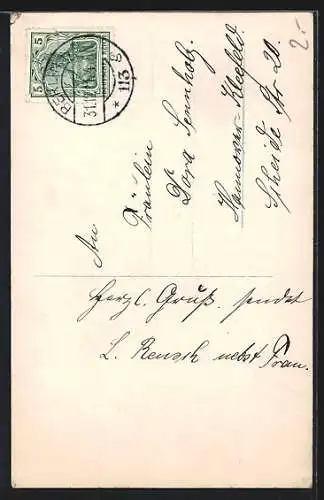 2.-
5 5
31.1
* 113
An
Fräulein
Dora Sennholz.
Hannover-Kleefeld.
Scheide Str 20.
Herzl. Gruß. sendet
L. Rensch nebst Frau.